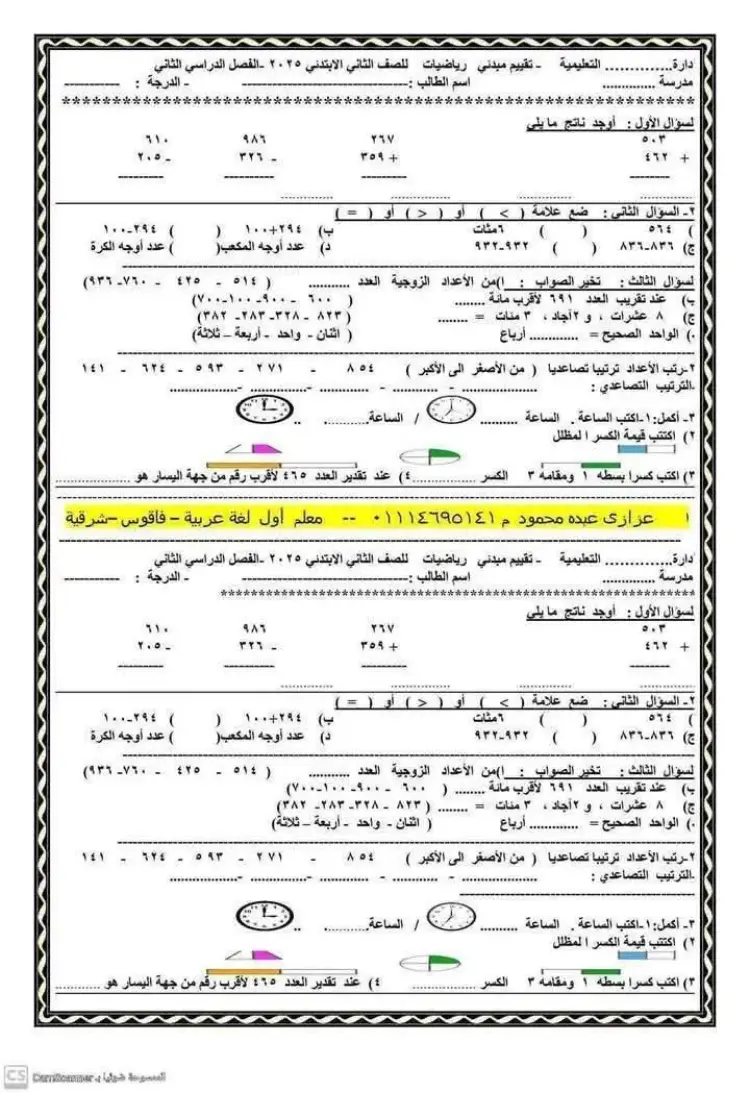 دارة............. التعليمية - تقييم مبدئي رياضيات للصف الثاني الابتدئي ٢٠٢٥ -الفصل الدراسي الثاني
مدرسة .............. اسم الطالب :---------------------------- - الدرجة : -----------
************************************************************
لسؤال الأول : أوجد ناتج ما يلي
٥٠٣ ٢٦٧ ٩٨٦ ٦١٠
+ ٤٦٢ + ٣٥٩ - ٣٢٦ - ٢٠٥
٢- السؤال الثاني : ضع علامة ( > ) أو ( < ) أو ( = )
( ٥٦٤ ( ) ٦مئات ب) ٢٩٤+١٠٠ ( ) ٢٩٤-١٠٠
ج) ٨٣٦-٨٣٦ ( ) ٩٣٢-٩٣٢ د) عدد أوجه المكعب( ) عدد أوجه الكرة
لسؤال الثالث : تخير الصواب : ا)من الأعداد الزوجية العدد ........... ( ٥١٤ - ٤٢٥ - ٧٦٠- ٩٣٦)
ب) عند تقريب العدد ٦٩١ لأقرب مائة ........ ( ٦٠٠ - ٩٠٠-١٠٠-٧٠٠)
ج) ٨ عشرات ، و ٢آحاد ، ٣ مئات = ........ ( ٨٢٣ - ٣٢٨- ٢٨٣- ٣٨٢)
.) الواحد الصحيح = ............. أرباع ( اثنان - واحد - أربعة – ثلاثة)
٢-رتب الأعداد ترتيبا تصاعديا ( من الأصغر الى الأكبر ) ٨٥٤ - ٢٧١ - ٥٩٣ - ٦٢٤ - ١٤١
.الترتيب التصاعدي : .................. - ............ - ............. -............... -..................
٣- أكمل:١-اكتب الساعة . الساعة .......... / الساعة........... ..
٢) اكتتب قيمة الكسر ا لمظلل
٣) اكتب كسرا بسطه ١ ومقامه ٣ الكسر ................ ٤) عند تقدير العدد ٤٦٥ لأقرب رقم من جهة اليسار هو ....................
١ عزازى عبده محمود م ٠١١١٤٦٩٥١٤١ -- معلم أول لغة عربية – فاقوس –شرقية
دارة............. التعليمية - تقييم مبدئي رياضيات للصف الثاني الابتدئي ٢٠٢٥ -الفصل الدراسي الثاني
مدرسة .............. اسم الطالب :---------------------------- - الدرجة : -----------
*********************************************
لسؤال الأول : أوجد ناتج ما يلي
٥٠٣ ٢٦٧ ٩٨٦ ٦١٠
+ ٤٦٢ + ٣٥٩ - ٣٢٦ - ٢٠٥
٢- السؤال الثاني : ضع علامة ( > ) أو ( < ) أو ( = )
( ٥٦٤ ( ) ٦مئات ب) ٢٩٤+١٠٠ ( ) ٢٩٤-١٠٠
ج) ٨٣٦-٨٣٦ ( ) ٩٣٢-٩٣٢ د) عدد أوجه المكعب( ) عدد أوجه الكرة
لسؤال الثالث : تخير الصواب : ا)من الأعداد الزوجية العدد ........... ( ٥١٤ - ٤٢٥ - ٧٦٠- ٩٣٦)
ب) عند تقريب العدد ٦٩١ لأقرب مائة ........ ( ٦٠٠ - ٩٠٠-١٠٠-٧٠٠)
ج) ٨ عشرات ، و ٢آحاد ، ٣ مئات = ........ ( ٨٢٣ - ٣٢٨- ٢٨٣- ٣٨٢)
.) الواحد الصحيح = ............. أرباع ( اثنان - واحد - أربعة – ثلاثة)
٢-رتب الأعداد ترتيبا تصاعديا ( من الأصغر الى الأكبر ) ٨٥٤ - ٢٧١ - ٥٩٣ - ٦٢٤ - ١٤١
.الترتيب التصاعدي : .................. - ............ - ............. -............... -..................
٣- أكمل:١-اكتب الساعة . الساعة .......... / الساعة........... ..
٢) اكتتب قيمة الكسر ا لمظلل
٣) اكتب كسرا بسطه ١ ومقامه ٣ الكسر ................ ٤) عند تقدير العدد ٤٦٥ لأقرب رقم من جهة اليسار هو ............
CS الممسوحة ضوئيا بـ CamScanner